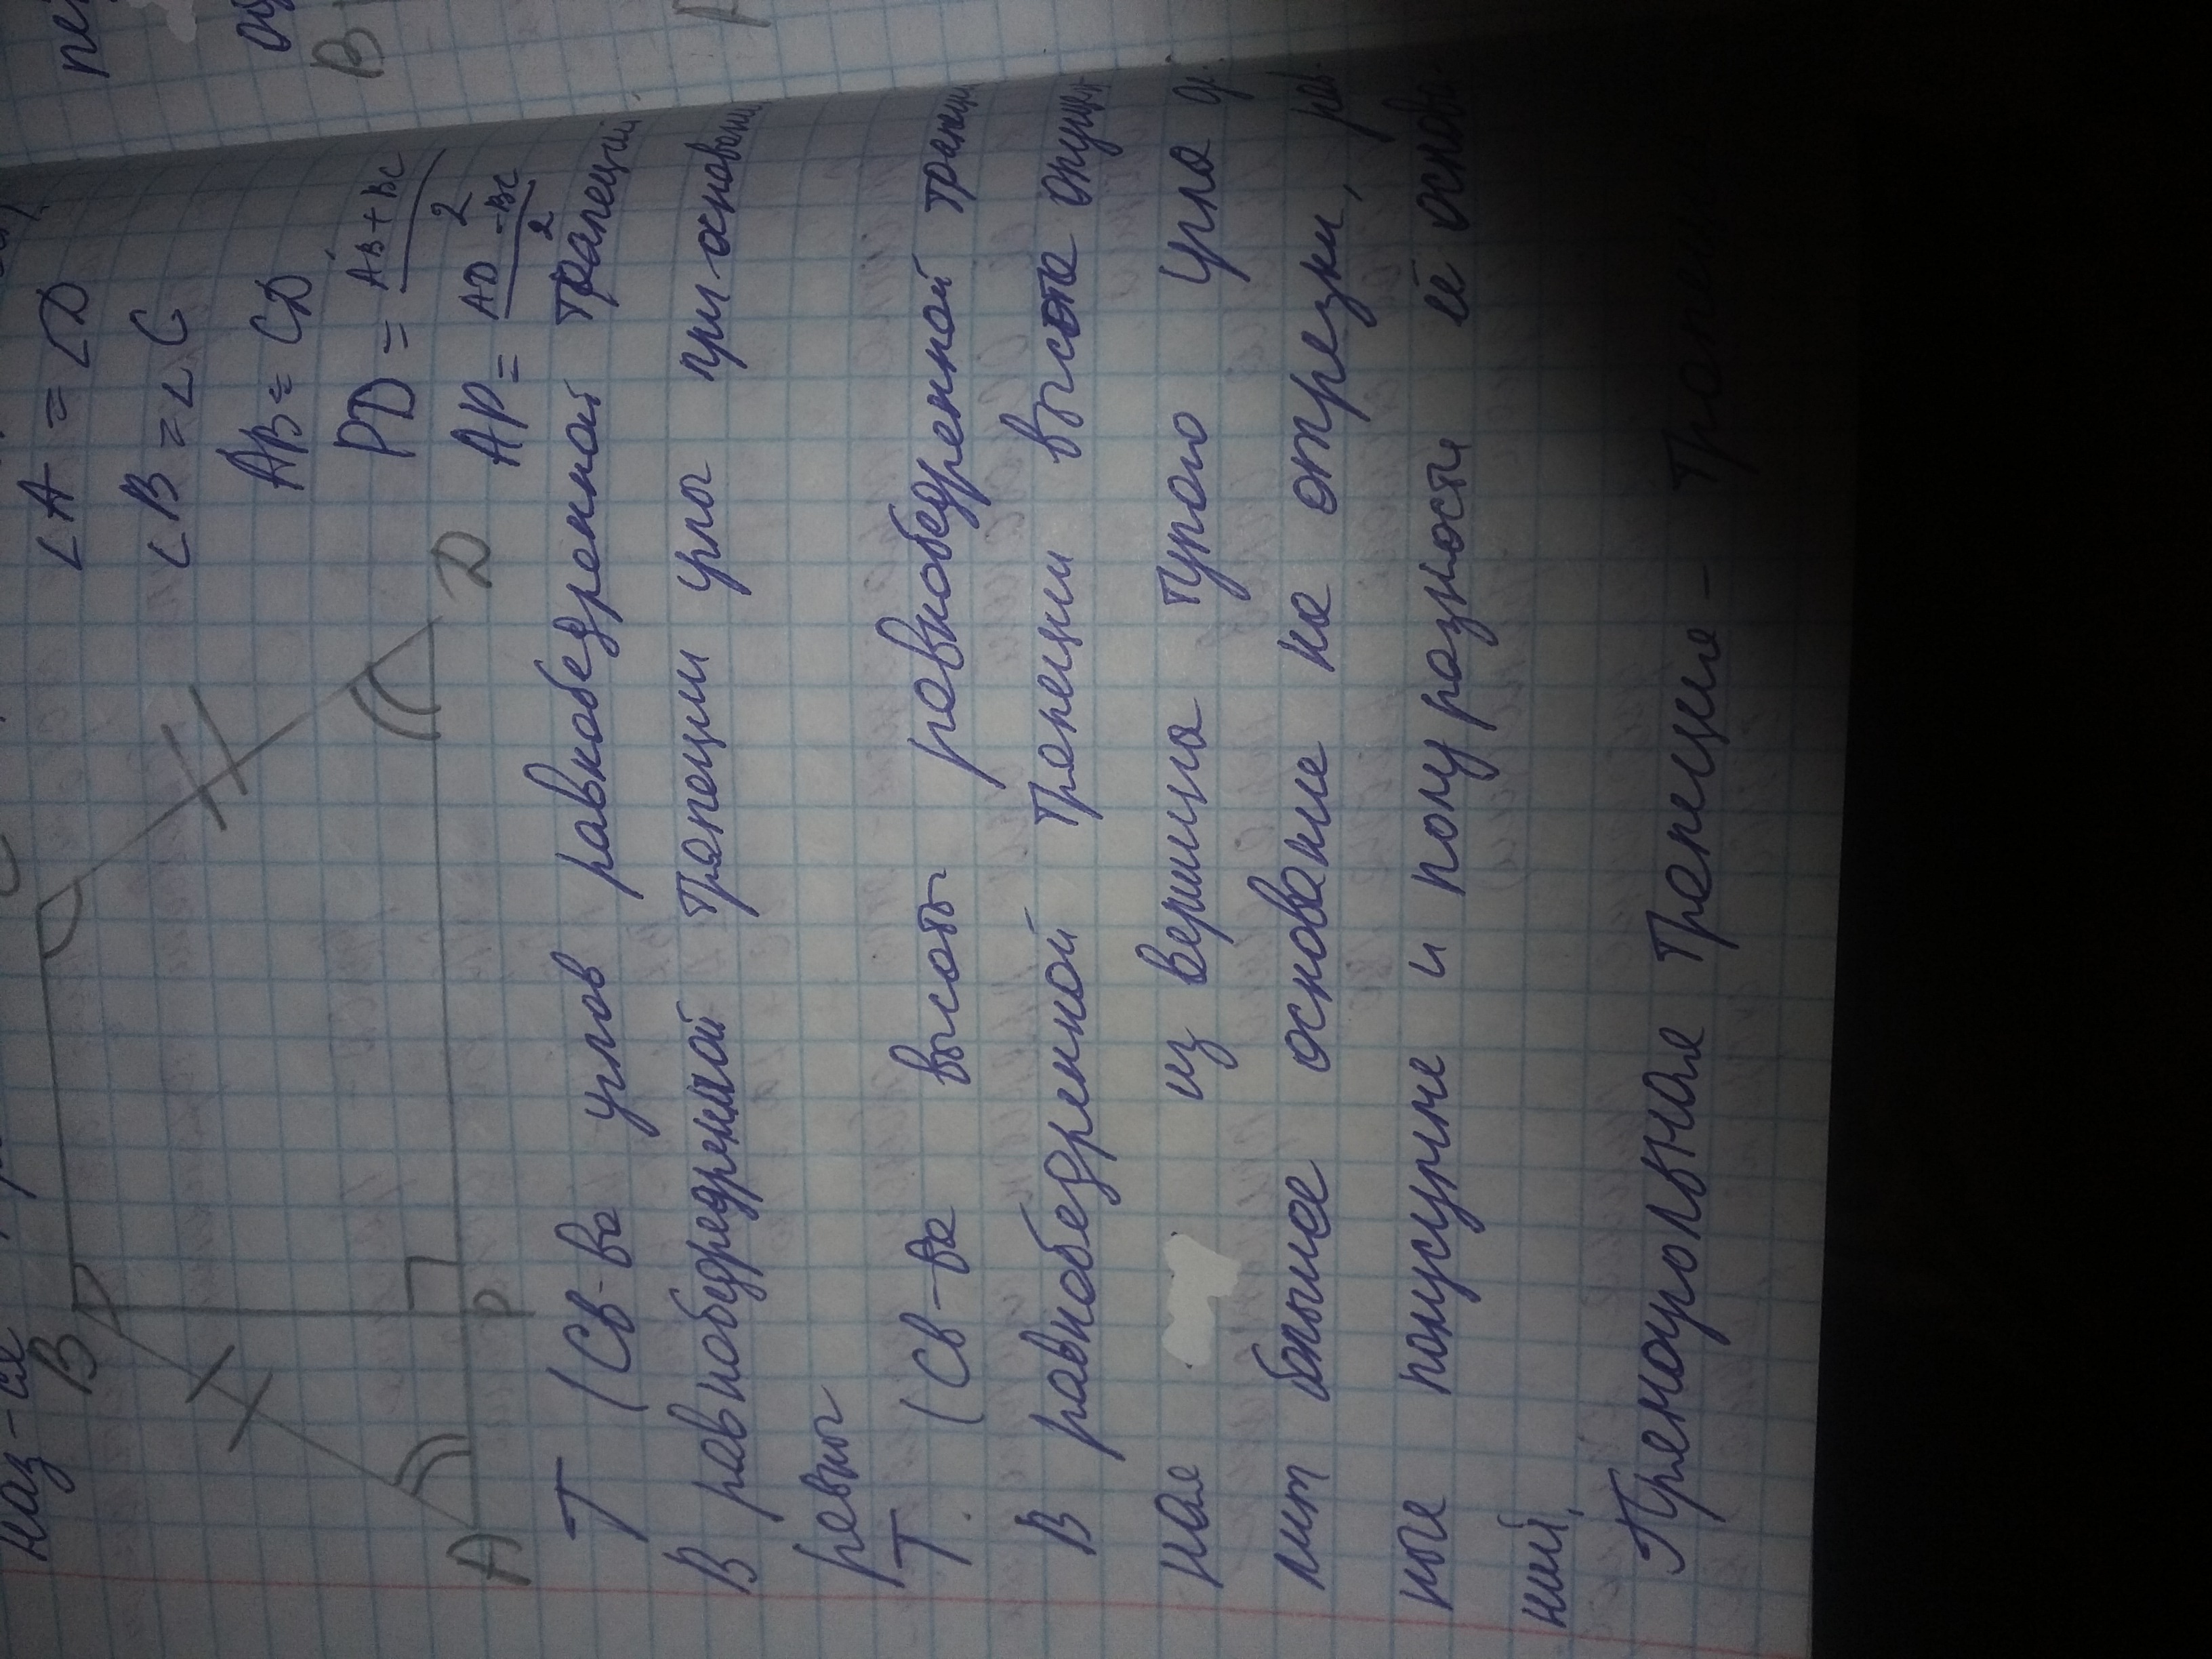 наз-ся
B
A
P
D
∠A = ∠D
∠B = ∠C
AB = CD
PD = AB + BC / 2
AP = AD - BC / 2
Т (Св-ва углов равнобедренной трапеций
В равнобедренной трапеции углы при основани
равны
Т. (Св-ва высоты равнобедренной трапец
В равнобедренной трапеции высота опущен
ная из вершины тупого угла
лит большее основание на отрезки, рав
ные полусумме и полуразности её основ
ний,
Прямоугольная трапеция - трапец
B